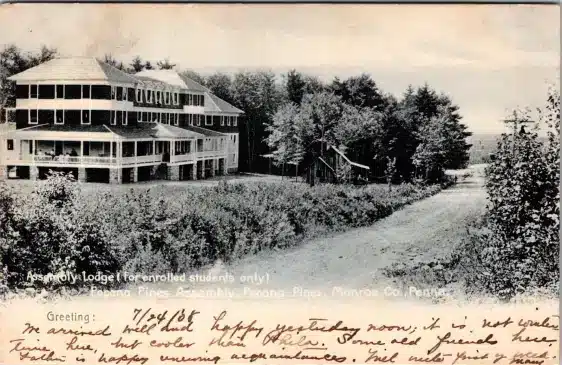 Assembly Lodge (for enrolled students only)
Pocono Pines Assembly, Pocono Pines, Monroe Co., Penna.
Greeting:
7/24/08
We arrived well and happy yesterday noon; it is not
Time here, but cooler than Phila. Some old friends here
Father is happy renewing acquaintances. Will write first of week.